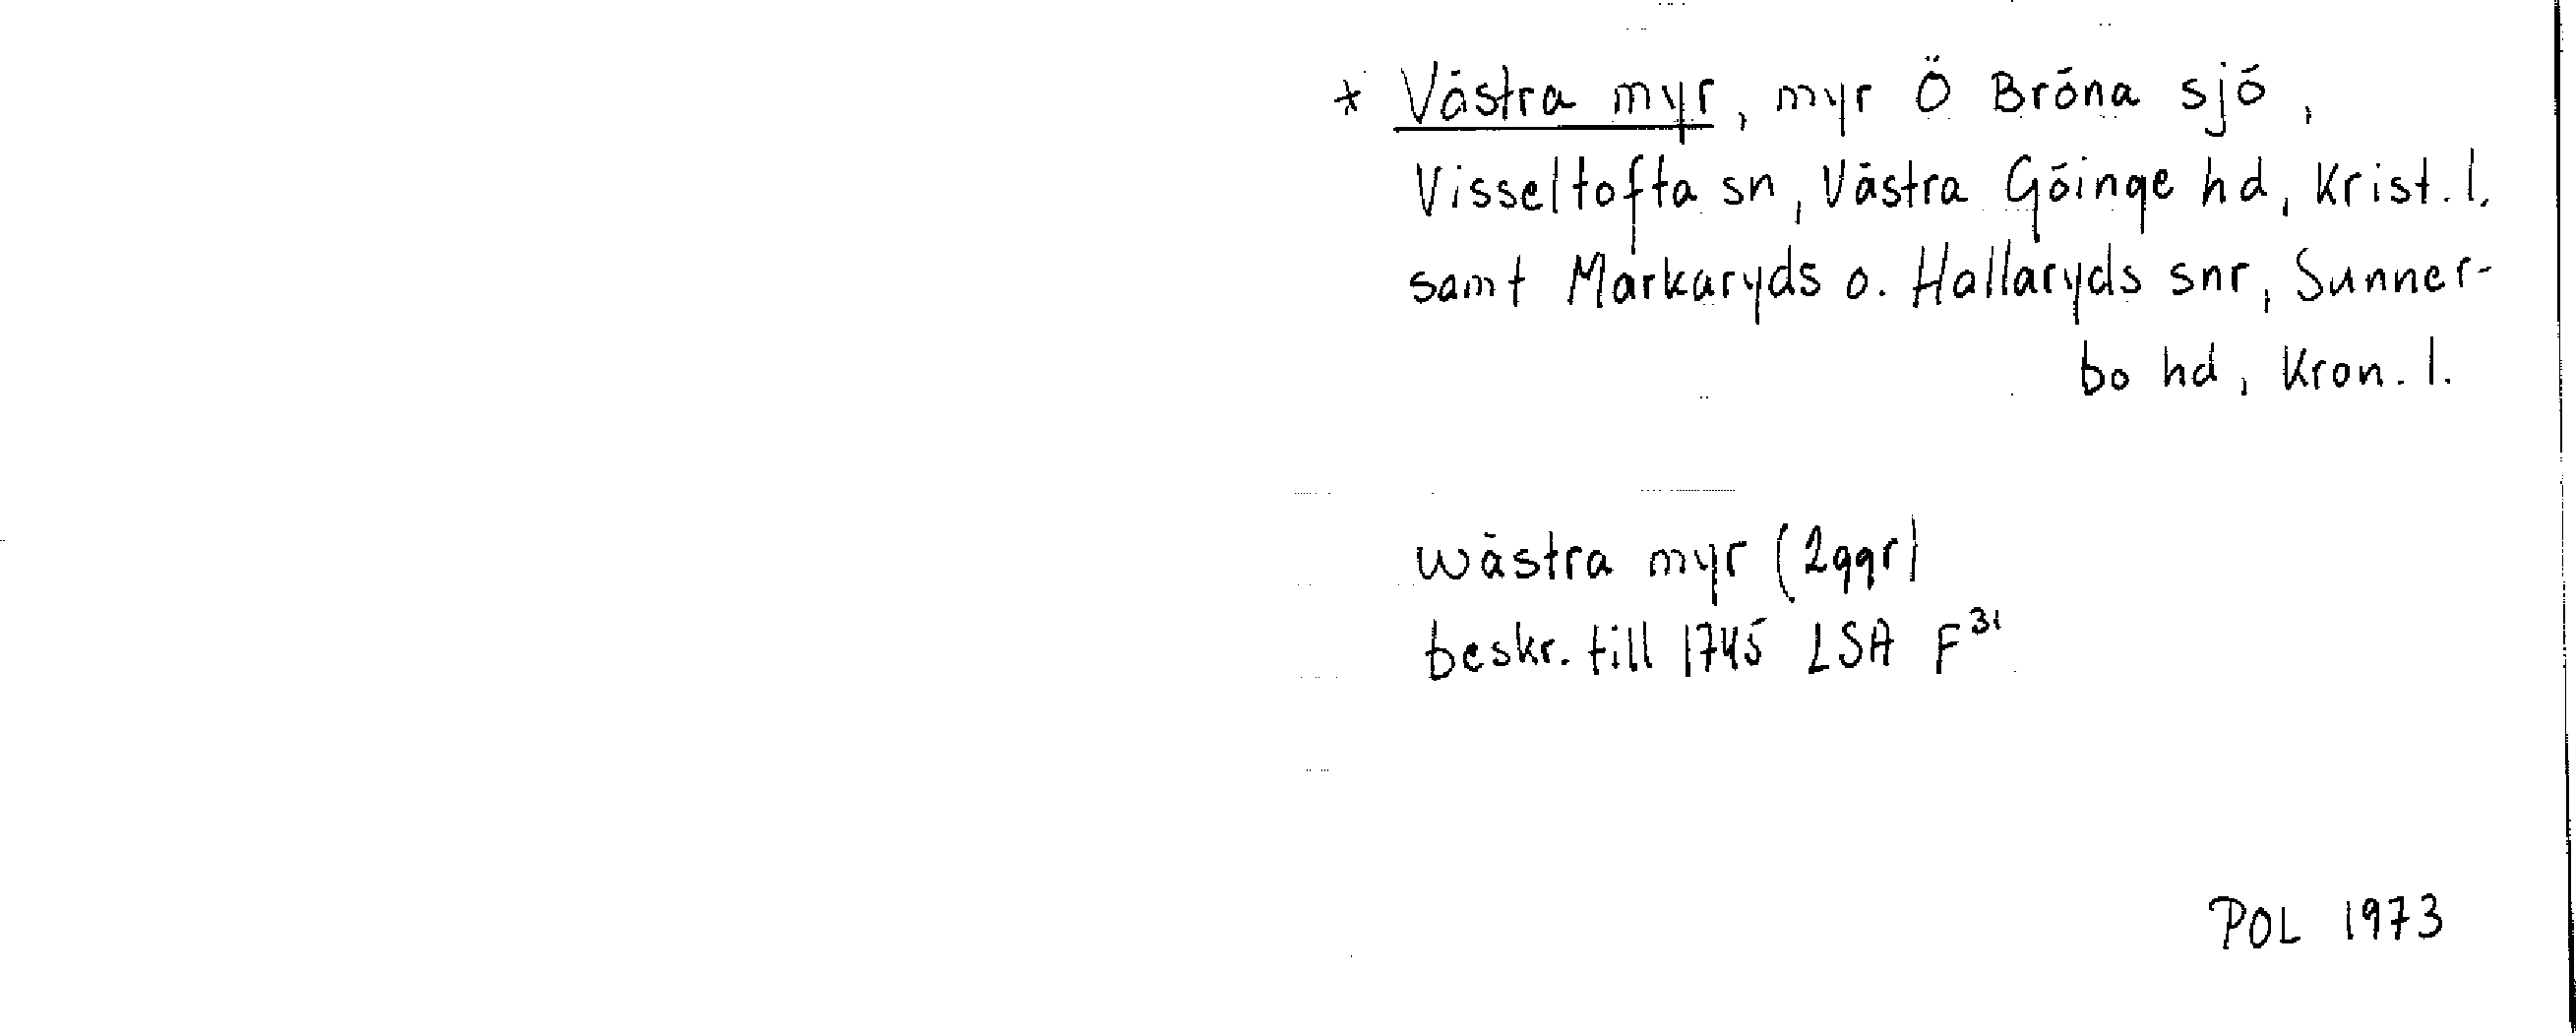 * Västra myr, myr Ö Bröna sjö,
Visseltofta sn, Västra Göinge hd, Krist. l.
samt Markaryds o. Hallaryds snr, Sunner-
bo hd, Kron. l.
wästra myr (2ggr)
beskr. till 1745 LSA F³¹
POL 1973